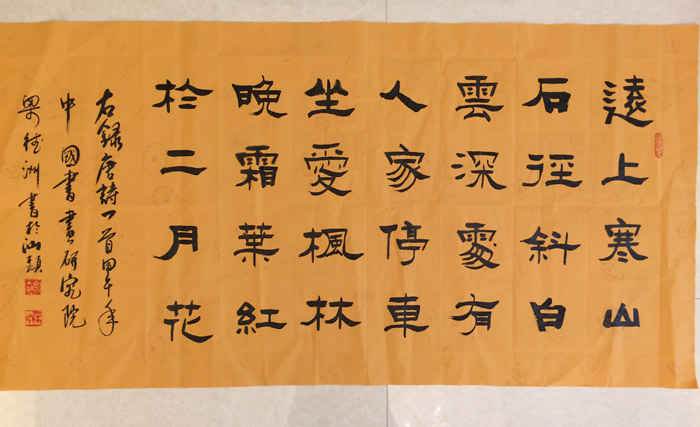 遠上寒山
石徑斜白
雲深處有
人家停車
坐愛楓林
晚霜葉紅
於二月花
右録唐詩一首甲午年
中國書畫研究院
梁洲書於汕頭